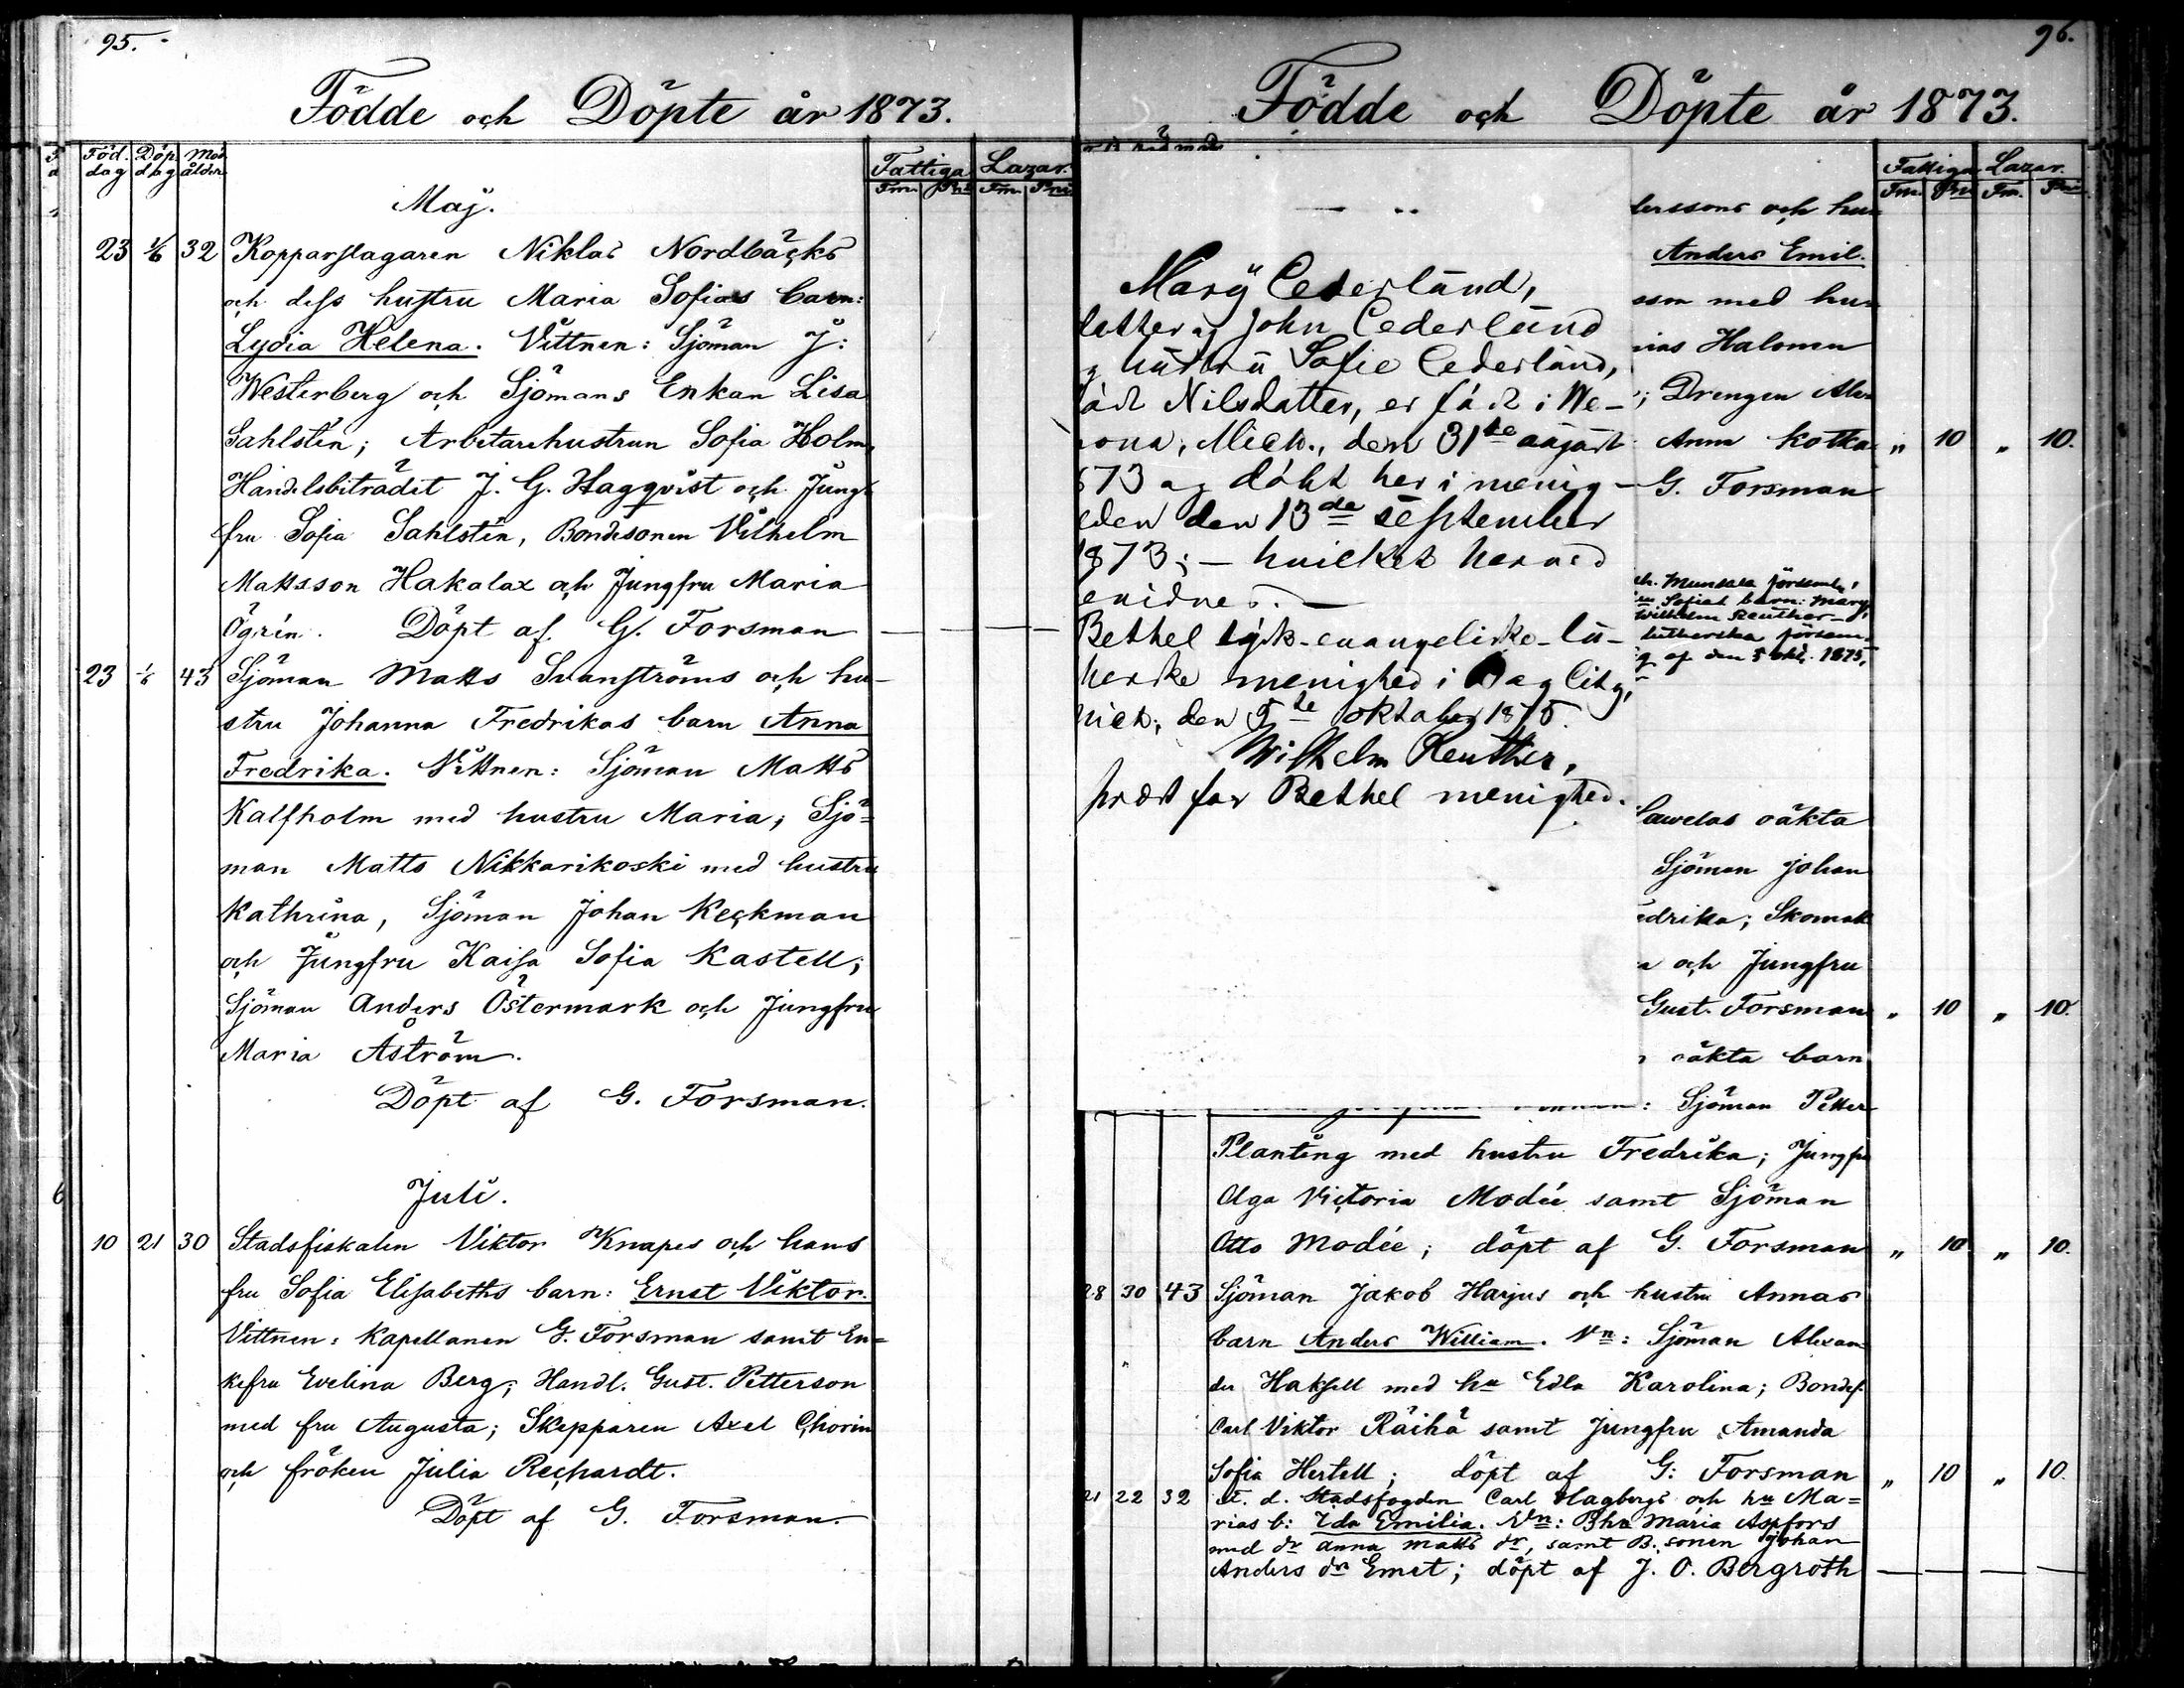 95.
Födde och Döpte år 1873.
Föd. dag Döp. dag Mod. ålder Fattiga Lazar.
Fm. Pni Fm. Pni
Maj.
23 1/6 32 Kopparslagaren Niklas Nordbäcks
och dess hustru Maria Sofias barn:
Lydia Helena. Vittnen: Sjöman J:
Westerberg och Sjömans Enkan Lisa
Sahlstén; Arbetarehustrun Sofia Holm,
Handelsbiträdet J. G. Hagqvist och Jung-
fru Sofia Sahlstén, Bondesonen Vilhelm
Mattsson Hakalax och Jungfru Maria
Ögrén. Döpt af G. Forsman
23 1/6 43 Sjöman Matts Svanströms och hu-
stru Johanna Fredrikas barn Anna
Fredrika. Vittnen: Sjöman Matts
Kalfholm med hustru Maria; Sjö=
man Matts Nikkarikoski med hustru
Kathrina, Sjöman Johan Keckman
och Jungfru Kaisa Sofia Kastell;
Sjöman Anders Östermark och Jungfru
Maria Åström.
Döpt af G. Forsman.
Juli.
10 21 30 Stadsfiskalen Viktor Knapes och hans
fru Sofia Elisabeths barn: Ernst Viktor.
Vittnen: Kapellanen G. Forsman samt En=
kefru Evelina Berg; Handl. Gust. Petterson
med fru Augusta; Skepparen Axel Chorin
och fröken Julia Rechardt.
Döpt af G. Forsman.
96.
Födde och Döpte år 1873.
Fattiga Lazar.
Fm. Pni Fm. Pni
Mary Cederlund,
datter af John Cederlund
og hustru Sofie Cederlund,
född Nilsdatter, er född i We-
nona, Mich., den 31te
873 og döbt her i menig-
eden den 13de september
1873; — hvilket herved
evidnes. —
Bethel lysk-evangeliske-lu-
herske menighed i Bag City,
Mich, den 5te oktober 1875.
Wilhelm Reuther,
præst for Bethel menighed.
derssons och hu-
Anders Emil.
sson med hu-
nias Halonen
; Drengen Alex
Ann Kotka „ 10 „ 10.
G. Forsman
ch. Munsala församl.
Sofias barn: Mary,
Wilhelm Reuther
lutherska försam-
af den 5 okt. 1875,
Pawelas oäkta
Sjöman Johan
edrika; Skomak
a och Jungfru
Gust. Forsman „ 10 „ 10.
oäkta barn
: Sjöman Petter
Planting med hustru Fredrika; Jungfru
Olga Victoria Modée samt Sjöman
Otto Modée; döpt af G. Forsman „ 10 „ 10.
28 30 43 Sjöman Jakob Harjus och hustru Annas
barn Anders William. Vn: Sjöman Alexan
der Haksell med hu Edla Karolina; Bondes.
Carl Viktor Räihä samt Jungfru Amanda
Sofia Hertell; döpt af G: Forsman „ 10 „ 10.
21 22 32 F. d. Stadsfogden Carl Hagbergs och hu Ma=
rias b: Ida Emilia. Vn: Bhu Maria Aspfors
med dr Anna Matts dr, samt B. sonen Johan
Anders dn Emet; döpt af J. O. Bergroth